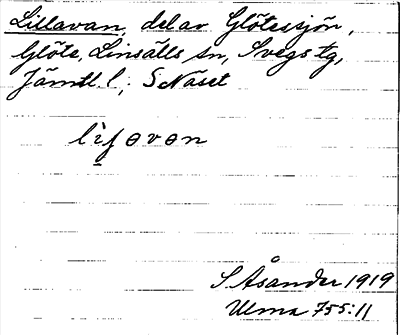 Lillavan, del av Glötessjön,
Glöte, Linsälls sn, Svegs tg,
Jämtl. l; S Näset
S Åsander 1919
Ulma 755:11